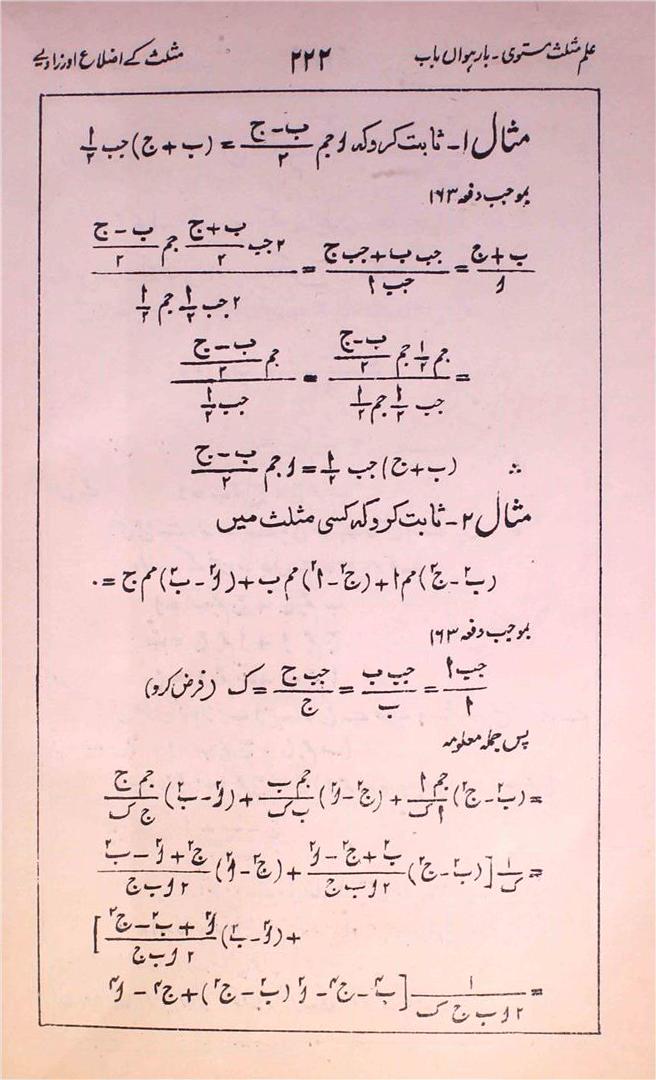 علم مثلث مستوی - بارہواں باب ۲۲۲ مثلث کے اضلاع اور زاویے
مثال ۱- ثابت کرو کہ لا جم (ب-ج)/۲ = (ب+ج) جب ا/۲
بموجب دفعہ ۱۶۳
(ب+ج)/لا = (جب ب + جب ج)/(جب ا) = (۲ جب (ب+ج)/۲ جم (ب-ج)/۲)/(۲ جب ا/۲ جم ا/۲)
= (جم ا/۲ جم (ب-ج)/۲)/(جب ا/۲ جم ا/۲) = (جم (ب-ج)/۲)/(جب ا/۲)
∴ (ب+ج) جب ا/۲ = لا جم (ب-ج)/۲
مثال ۲- ثابت کرو کہ کسی مثلث میں
(ب۲-ج۲) مم ا + (ج۲-ا۲) مم ب + (لا۲-ب۲) مم ج = ۰
بموجب دفعہ ۱۶۳
جب ا/ا = جب ب/ب = جب ج/ج = ک (فرض کرو)
پس جملہ معلومہ
= (ب۲-ج۲) جم ا/ا ک + (ج۲-لا۲) جم ب/ب ک + (لا۲-ب۲) جم ج/ج ک
= ۱/ک [(ب۲-ج۲) (ب۲+ج۲-لا۲)/(۲ لا ب ج) + (ج۲-لا۲) (ج۲+لا۲-ب۲)/(۲ لا ب ج)
+ (لا۲-ب۲) (لا۲+ب۲-ج۲)/(۲ لا ب ج)]
= ۱/(۲ لا ب ج ک) [ب۴-ج۴-لا۲ (ب۲-ج۲) + ج۴-لا۴